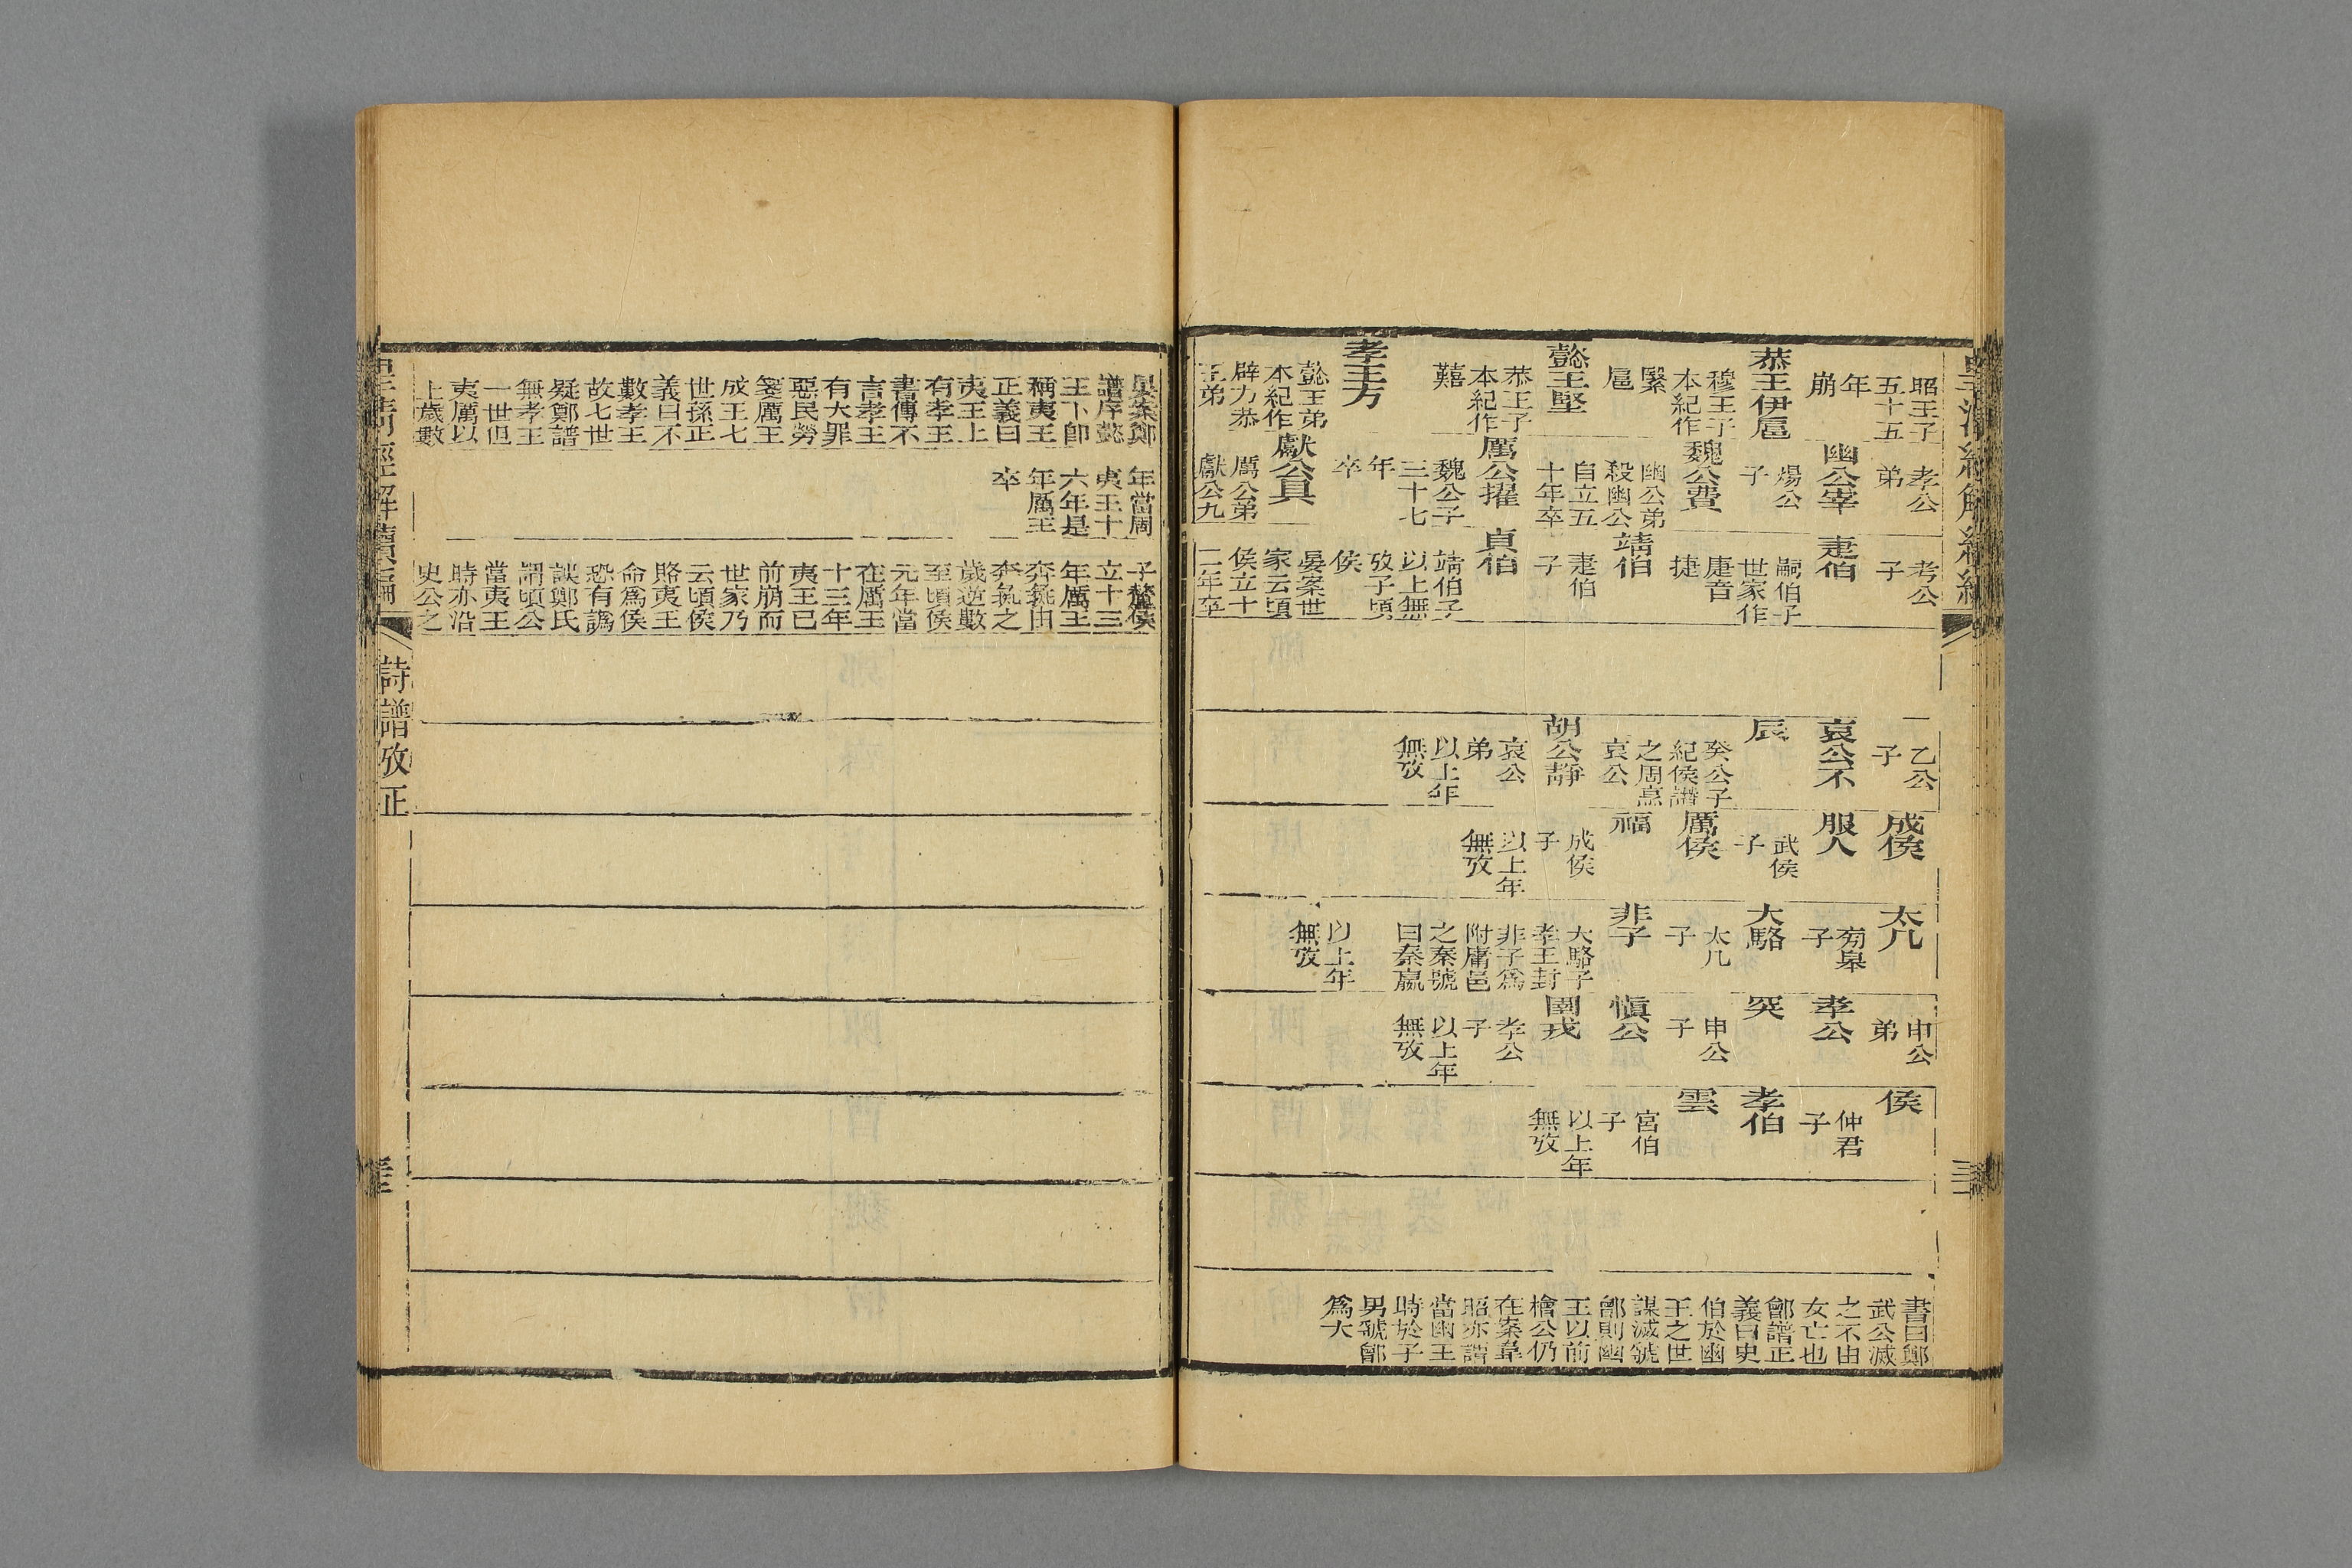 昭王子
五十五
年
崩
恭王伊扈
穆王子
本紀作
繄
扈
懿王堅
恭王子
本紀作
囏
孝王方
懿王弟
本紀作
辟方恭
王弟
孝公
弟
幽公宰
煬公
子
魏公費
幽公弟
殺幽公
自立五
十年卒
厲公擢
魏公子
三十七
年
卒
獻公具
厲公弟
獻公九
考公
子
疌伯
嗣伯子
世家作
疌音
捷
靖伯
疌伯
子
貞伯
靖伯子
以上無
攷子頃
侯
晏案世
家云頃
侯立十
二年卒
乙公
子
哀公不
辰
癸公子
紀侯譖
之周烹
哀公
胡公靜
哀公
弟
以上年
無攷
成侯
服人
武侯
子
厲侯
福
成侯
子
以上年
無攷
太几
旁皋
子
大駱
太几
子
非子
大駱子
孝王封
非子爲
附庸邑
之秦號
曰秦嬴
以上年
無攷
申公
弟
孝公
突
申公
子
愼公
圉戎
孝公
子
以上年
無攷
侯
仲君
子
孝伯
雲
宮伯
子
以上年
無攷
書曰鄭
武公滅
之不由
女亡也
鄶譜正
義曰史
伯於幽
王之世
謀滅虢
鄶則幽
王以前
檜公仍
在案韋
昭亦謂
當幽王
時於子
男虢鄶
爲大
晏案鄭
譜序懿
王下卽
稱夷王
正義曰
夷王上
有孝王
書傳不
言孝王
有大罪
惡民勞
箋厲王
成王七
世孫正
義曰不
數孝王
故七世
疑鄭譜
無孝王
一世但
夷厲以
上歲數
年當周
夷王十
六年是
年厲王
卒
子釐侯
立十三
年厲王
奔彘由
奔彘之
歲逆數
至頃侯
元年當
在厲王
十三年
夷王已
前崩而
世家乃
云頃侯
賂夷王
命爲侯
恐有譌
誤鄭氏
謂頃公
當夷王
時亦沿
史公之
皇清經解續編
詩譜攷正